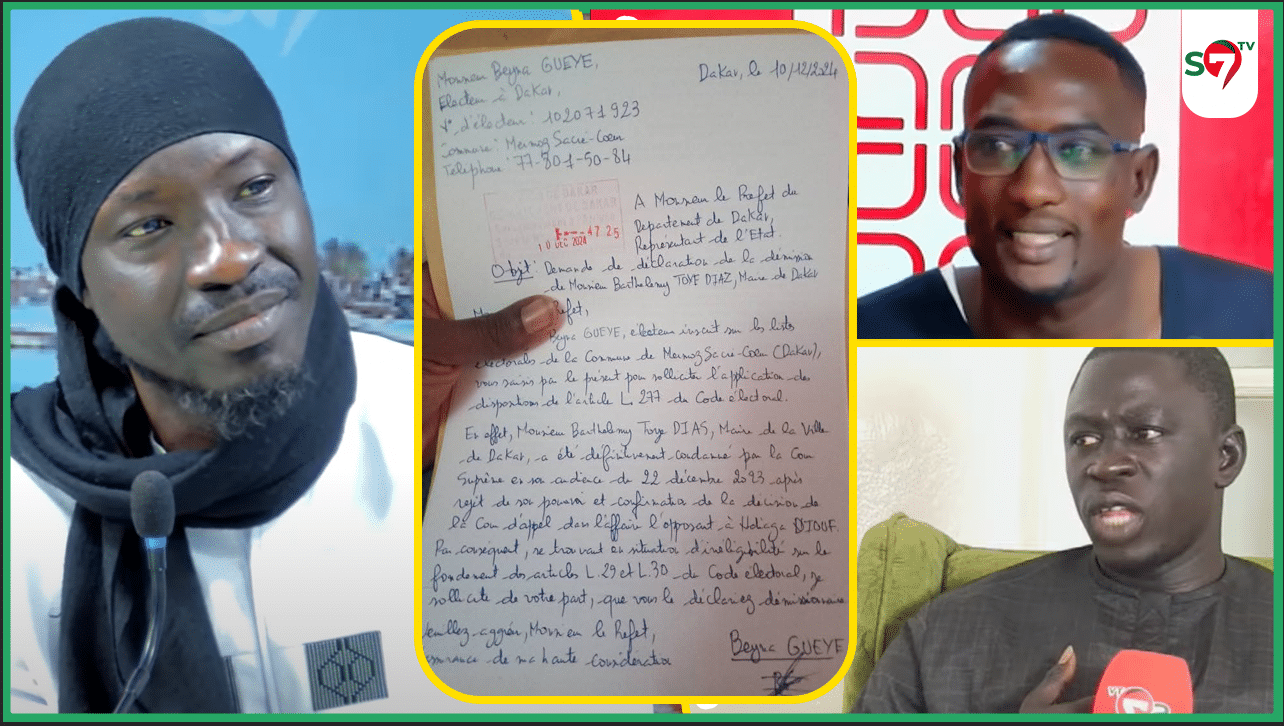 Monsieur Beyna GUEYE,
Electeur à Dakar,
N° d'électeur : 102071923
Commune : Mermoz Sacré-Coeur
Téléphone : 77-801-50-84
Dakar, le 10/12/2024
DAKAR
10 DEC 2024
47 25
A Monsieur le Prefet du
Departement de Dakar,
Representant de l'Etat.
Objt : Demande de déclaration de la démission
de Monsieur Barthelemy TOYE DIAZ, Maire de Dakar
Refet,
Beyna GUEYE, électeur inscrit sur les listes
électorales de la Commune de Mermoz Sacré-Coeur (Dakar),
vous saisis par le présent pour solliciter l'application des
dispositions de l'article L. 277 du Code électoral.
En effet, Monsieur Barthelemy Toye DIAS, Maire de la Ville
de Dakar, a été définitivement condamné par la Cour
Suprême en son audience du 22 décembre 2023 après
rejet de son pourvoi et confirmation de la décision de
la Cour d'appel dans l'affaire l'opposant à Ndiaga DIOUF.
Par conséquent, se trouvant en situation d'inéligibilité sur le
fondement des articles L.29 et L.30 du Code électoral, je
sollicite de votre part, que vous le déclariez démissionnaire
Veuillez agréer, Monsieur le Préfet,
assurance de ma haute considération
Beyna GUEYE
S7 TV